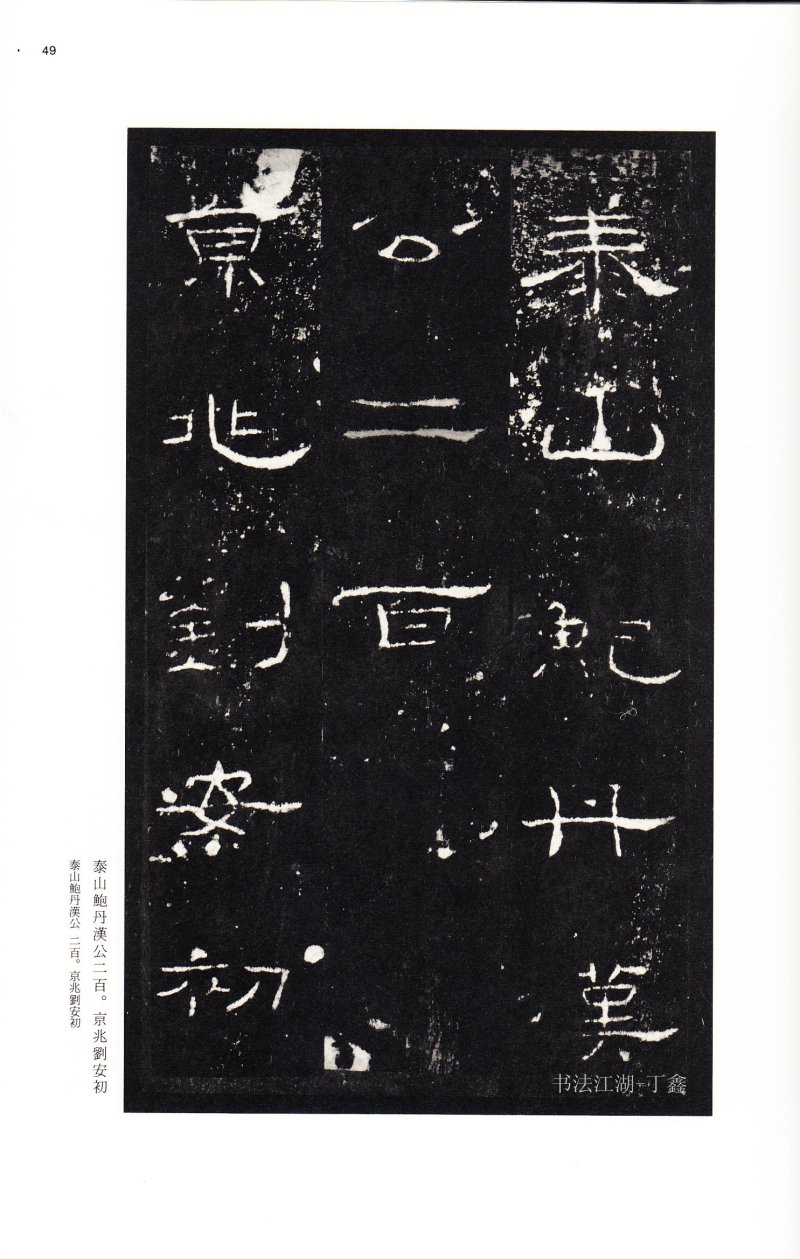 49
泰山鮑丹漢
公二百
亰兆劉安初
泰山鮑丹漢公二百。亰兆劉安初
泰山鮑丹漢公 二百。京兆劉安初
书法江湖-丁鑫